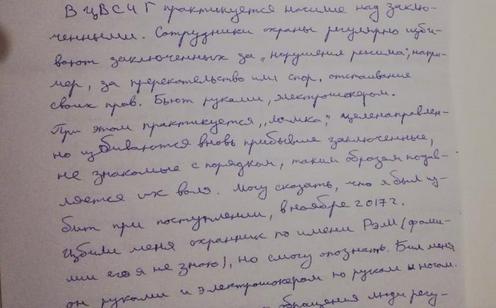 В ЦВСИГ практикуется насилие над заклю-
ченными. Сотрудники охраны регулярно изби-
вают заключенных за „нарушения режима", напри-
мер, за пререкательство или спор, отстаивание
своих прав. Бьют руками, электрошокером.
При этом практикуется „ломка", целенаправлен-
но избиваются вновь прибывшие заключенные,
не знакомые с порядком, таким образом подав-
ляется их воля. Могу сказать, что я был из-
бит при поступлении, в ноябре 2017 г.
Избили меня охранник по имени Рэм (фами-
лии его я не знаю), но смогу опознать. Бил меня
он руками и электрошокером по рукам и ногам.
обращения люди регу-